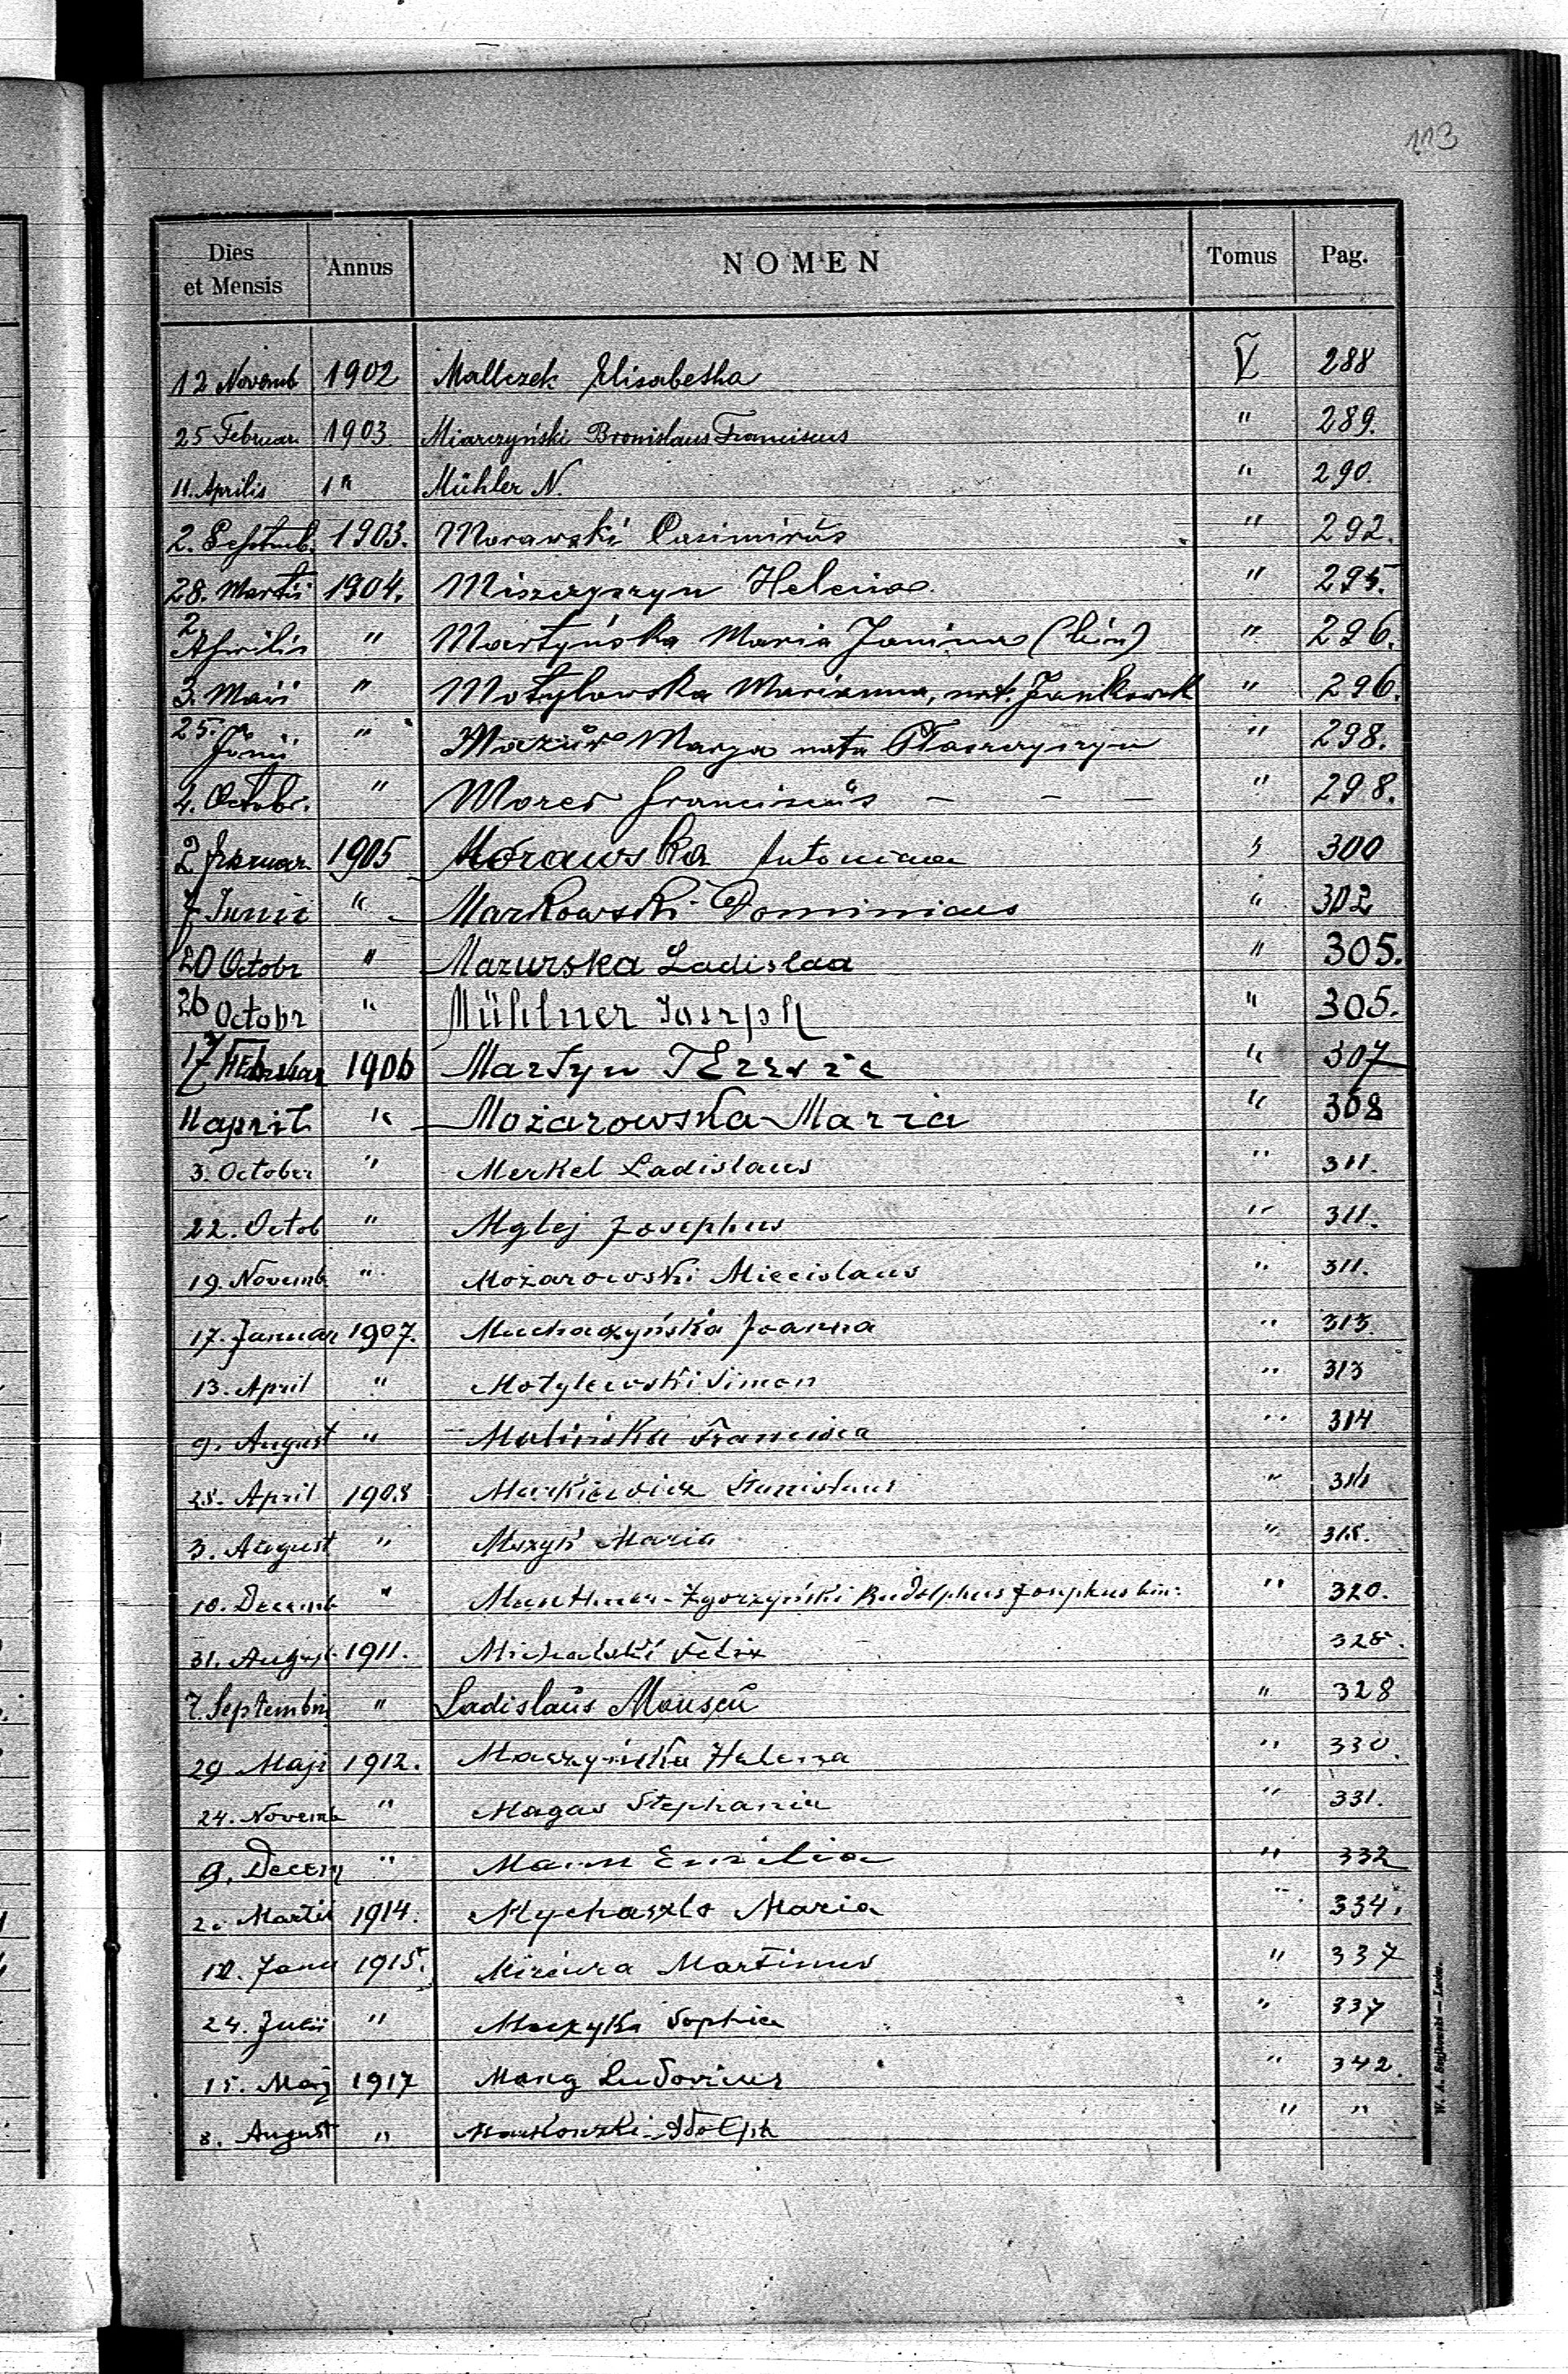 113
Dies et Mensis Annus NOMEN Tomus Pag.
12 Novemb 1902 Mallczek Elisabetha V 288
25 Februar. 1903 Miarczyński Bronislaus Franciscus " 289.
11. Aprilis 1" Mühler N. " 290.
2. Septemb. 1903. Morawski Casimirus " 292.
28. Martii 1904. Miszczyszyn Helena " 295.
2 Aprilis " Martyńska Maria Janina " 296.
3. Maii " Motylowska Marianna, nat. " 296.
25. Junii " Mazur Marya nata " 298.
2. Octobr. " Franciscus — — — " 298.
2 februar 1905 Morawska Antonina " 300
7 Junii " Markowski Dominicus " 302
20 Octobr " Mazurska Ladislaa " 305.
26 Octobr " Mühlner Joseph " 305.
17 Februar 1906 Martyn " 307
11 april " Możarowska Maria " 308
3. October " Merkel Ladislaus " 311.
22. Octob " Mglej Josephus " 311.
19. Novemb. " Możarowski Miecislaus " 311.
17. Januar 1907. Muchaczyńska Joanna " 313.
13. April " Motylewski Simon " 313
9. August " Malińska Francisca " 314
28. April 1908 Markiewicz Stanislaus "
3. August " Maria "
10. Decemb " Zgorzyński Rudolphus Josephus bin: " 320.
31. August 1911. Michalski Felix 328.
7. Septembris " Ladislaus " 328
29 Maji 1912. Maczyńska Helena " 330.
24. Novemb " Magas Stephania " 331.
9. Decem " Mann Emilia " 332
Martii 1914. Mychaszlo Maria " 334.
Janu 1915. Miziura Martinus " 337
24. Julii " Muzyka Sophia " 337
15. Maj 1917 Mang Ludovicus " 342.
8. August " Adolph " "